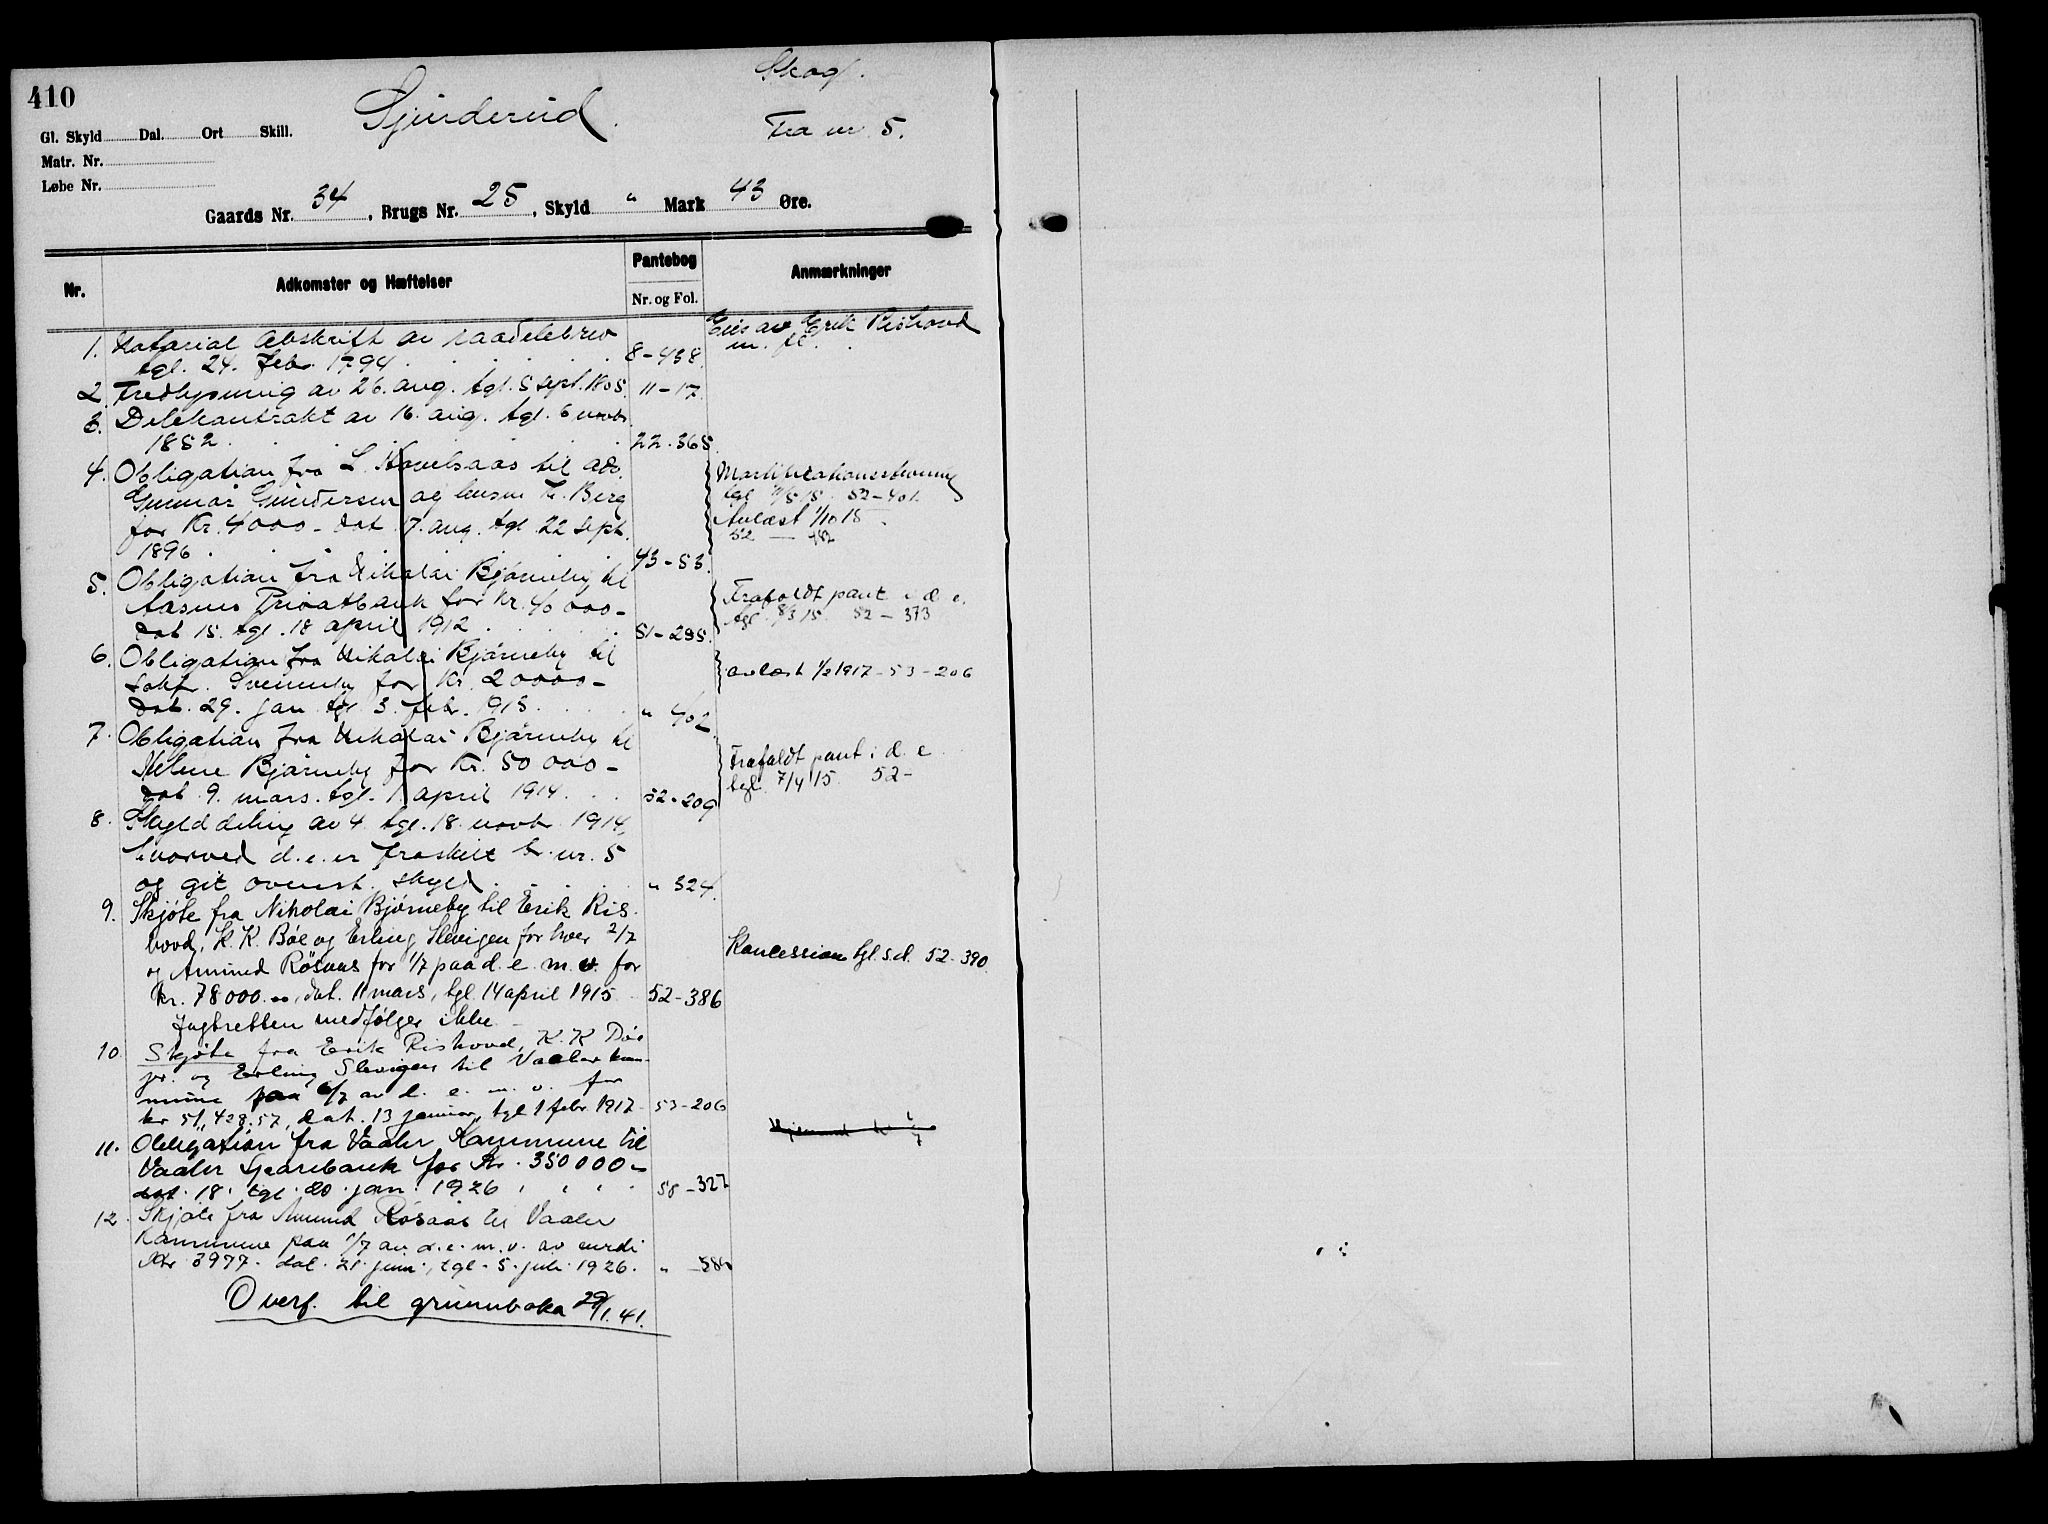 410
Skog.
Gjinderud.
Fra nr. 5.
Gl. Skyld Dal. Ort Skill.
Matr. Nr.
Løbe Nr.
Gaards Nr. 34, Brugs Nr. 25, Skyld " Mark 43 Øre.
Nr. Adkomster og Hæftelser Pantebog Anmærkninger
Nr. og Fol.
1. Notarial Abskrift av raadelebrev Eies av Erik Rishovd
tgl. 24. Febr. 1794. 8-438. m. fl.
2. Fredlysning av 26. aug. tgl. 5 sept. 1805. 11-17.
3. Delekontrakt av 16. aug. tgl. 6 novbr.
1852. 22-365.
4. Obligation fra L. Hovelsaas til adv. Mortifikationsstevning
Gunnar Gundersen og lensm. Kr. Berg tgl. 52-401.
for Kr. 4000- dat 17. aug. tgl. 22 sept. Avlæst 1/10 15.
1896. 43-53. 52 —
5. Obligation fra Nikolai Bjørneby til
Aasnes Privatbank for Kr. 40 000- Frafaldt pant i d. e.
dat 15. tgl. 18 april 1912. 51-295. tgl. 8/3 15. 52-373
6. Obligation fra Nikolai Bjørneby til
Sakf. Svenneby for Kr. 20000- avlæst 1/2 1917-53-206
dat. 29. jan. tgl. 3. febr. 1913. " 402
7. Obligation fra Nikolai Bjørneby til
Bjørneby for Kr. 50 000- Frafaldt pant i d. e.
dat. 9. mars. tgl. 1 april 1914. 52-209 tgl. 7/4 15. 52-
8. Skylddeling av 4. tgl. 18. novbr. 1914,
hvorved d. e. er fraskilt br. nr. 5
og git ovenst. skyld. " 324.
9. Skjøte fra Nikolai Bjørneby til Erik Ris-
hovd, K. K. Bøe og Erling Slevigen for hver 2/7
og Amund Røsaas for 1/7 paa d. e. m. v. for Koncession tgl. s.d. 52-390.
kr. 78000.00, dat. 11 mars, tgl. 14 april 1915 52-386
Jagtretten medfølger ikke.
10. Skjøte fra Erik Rishovd, K. K. Bøe
jr. og Erling Slevigen til Vaaler kom-
mune paa 6/7 av d. e. m. v. for
kr 51,428,57, dat. 13 januar, tgl. 1 febr. 1917 53-206
11. Obligation fra Vaaler Kommune til
Vaaler Sparebank for Kr. 350000-
dat. 18. tgl. 20. jan. 1926 58-327
12. Skjøte fra Amund Røsaas til Vaaler
Kommune paa 1/7 av d. e. m. v. av verdi
Kr. 3977. dat. 21. juni, tgl. 5. juli 1926. "
Overf. til grunnboka 29/1. 41.